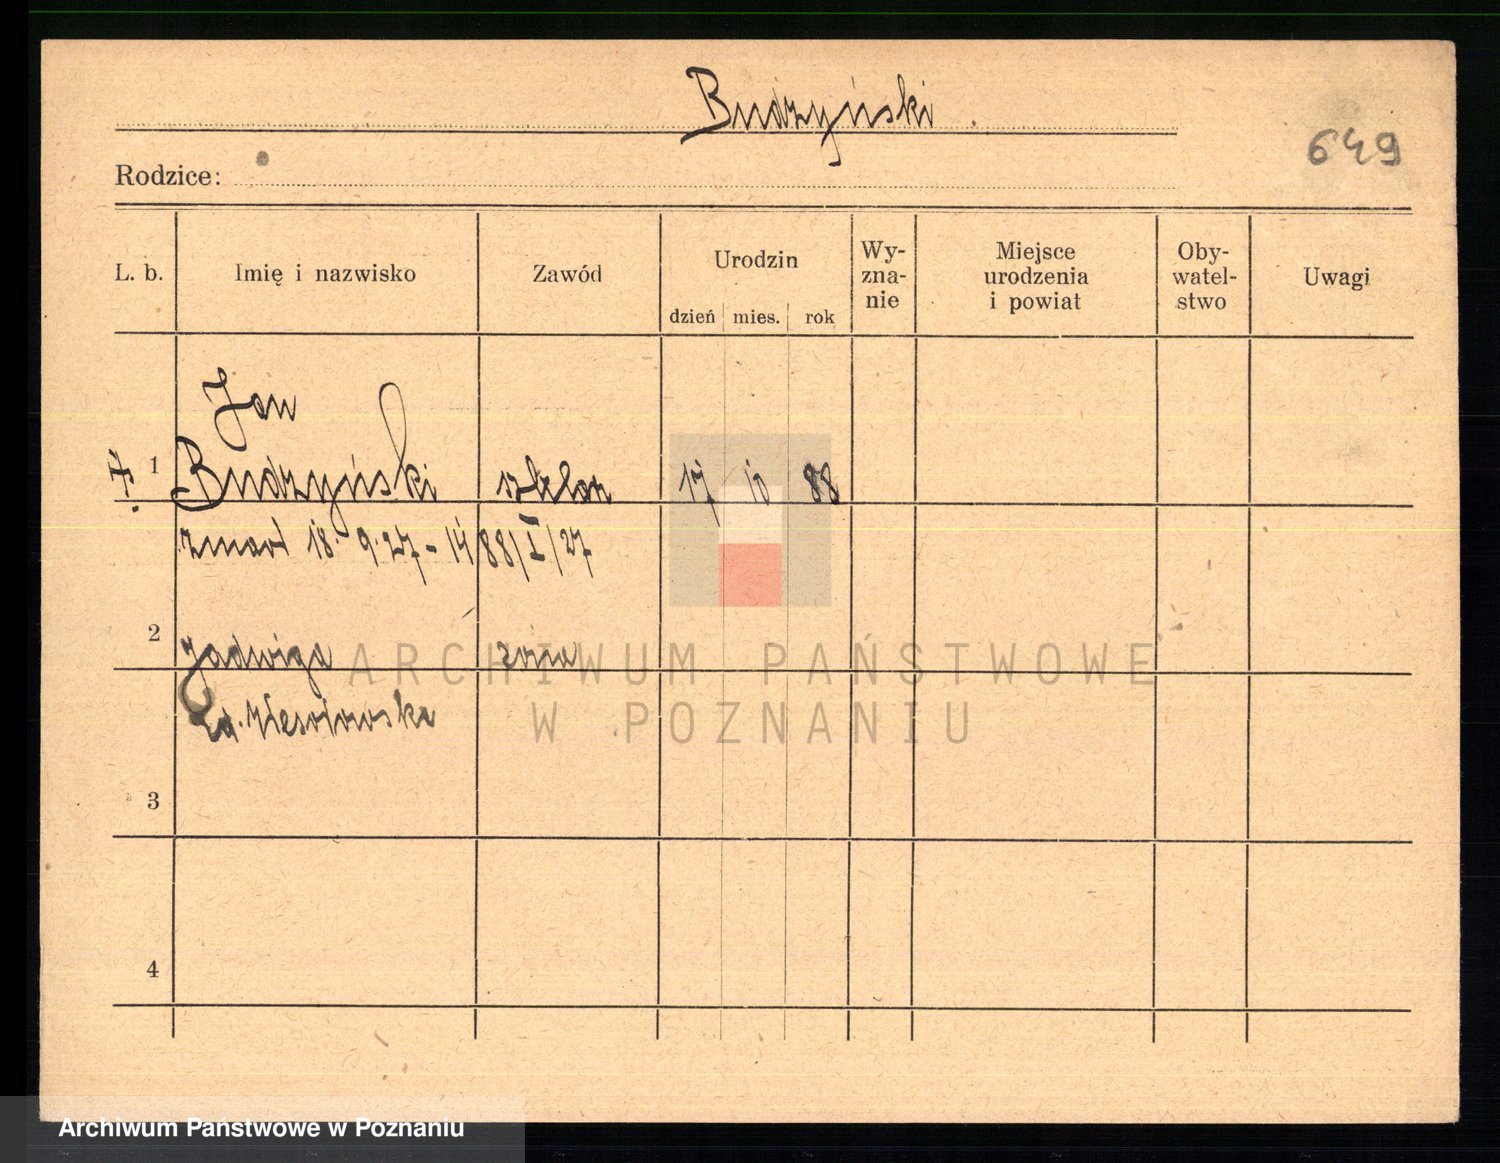 Budzyński.
649
Rodzice:
L. b. Imię i nazwisko Zawód Urodzin Wy-zna-nie Miejsce urodzenia i powiat Oby-watel-stwo Uwagi
dzień mies. rok
Jan
1 Budzyński 17 10 88
zmarł 18. 9. 27 - 1488/I/27
2 Jadwiga żona
3
4
ARCHIWUM PAŃSTWOWE
W POZNANIU
Archiwum Państwowe w Poznaniu